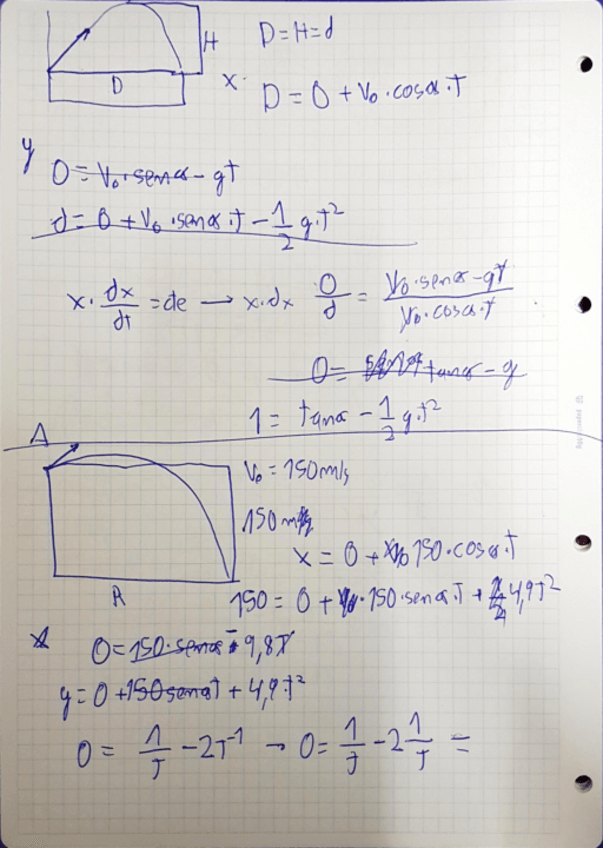 H D=H=d
D
x. D = 0 + V₀ · cosα · T
y
0 = V₀ · senα - gT
d = 0 + V₀ · senα · T - 1/2 g · T²
x · dx/dt = de → x · dx 0/d = V₀ · senα - gT / V₀ · cosα · T
0 = tanα - g
1 = tanα - 1/2 g · T²
A
V₀ = 150 m/s
150 m
x = 0 + 150 · cosα · T
R
150 = 0 + 150 · senα · T + 4,9T²
0 = 150 · senα - 9,8T
y = 0 + 150senαT + 4,9 · T²
0 = 1/T - 2T⁻¹ → 0 = 1/T - 2 1/T =